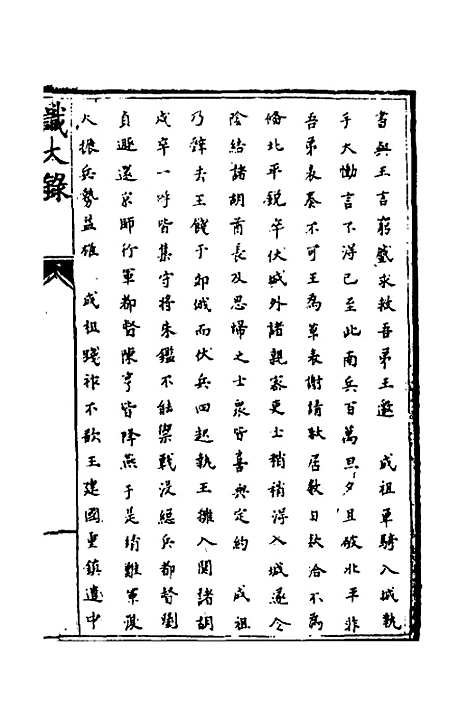 書與王言窮蹙求救吾弟王邀　成祖單騎入城執
手大慟言不得已至此南兵百萬旦夕且破北平非
吾弟表奏不可王為草表謝請赦居數日款洽不為
俻北平銳卒伏城外諸親密吏士稍稍得入城遂令
陰結諸胡酋長及思歸之士衆皆喜與定約　成祖
乃辭去王餞于郊城而伏兵四起執王擁入関諸胡
戍卒一呼皆集守將朱鑑不能禦戰没緫兵都督劉
貞遁還京師行軍都督陳亨皆降燕于是靖難軍復
大振兵勢益雄　成祖踐祚不欲王建國重鎮遣中
識大錄